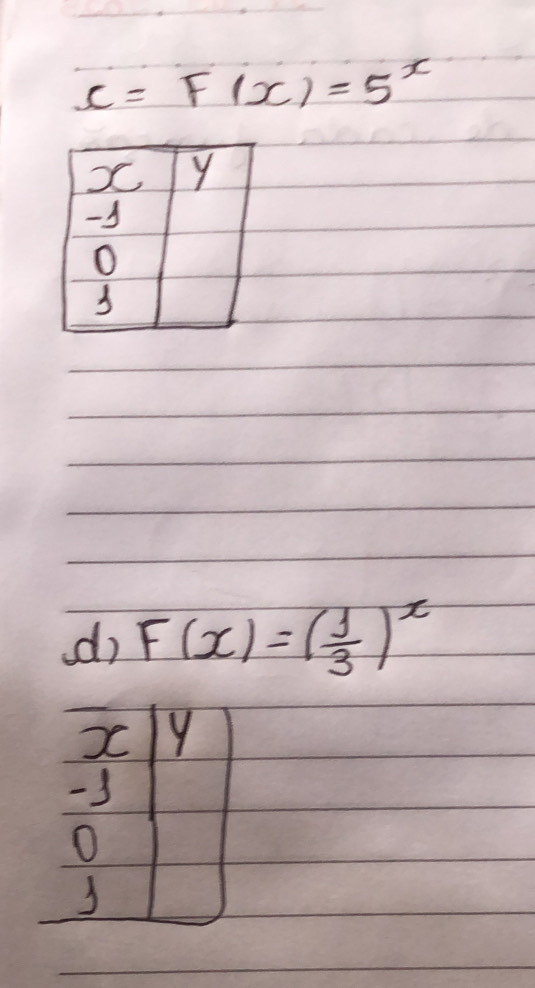 c = F(x) = 5^x
x | y
-1 |
0 |
1 |
d) F(x) = (1/3)^x
x | y
-1 |
0 |
1 |